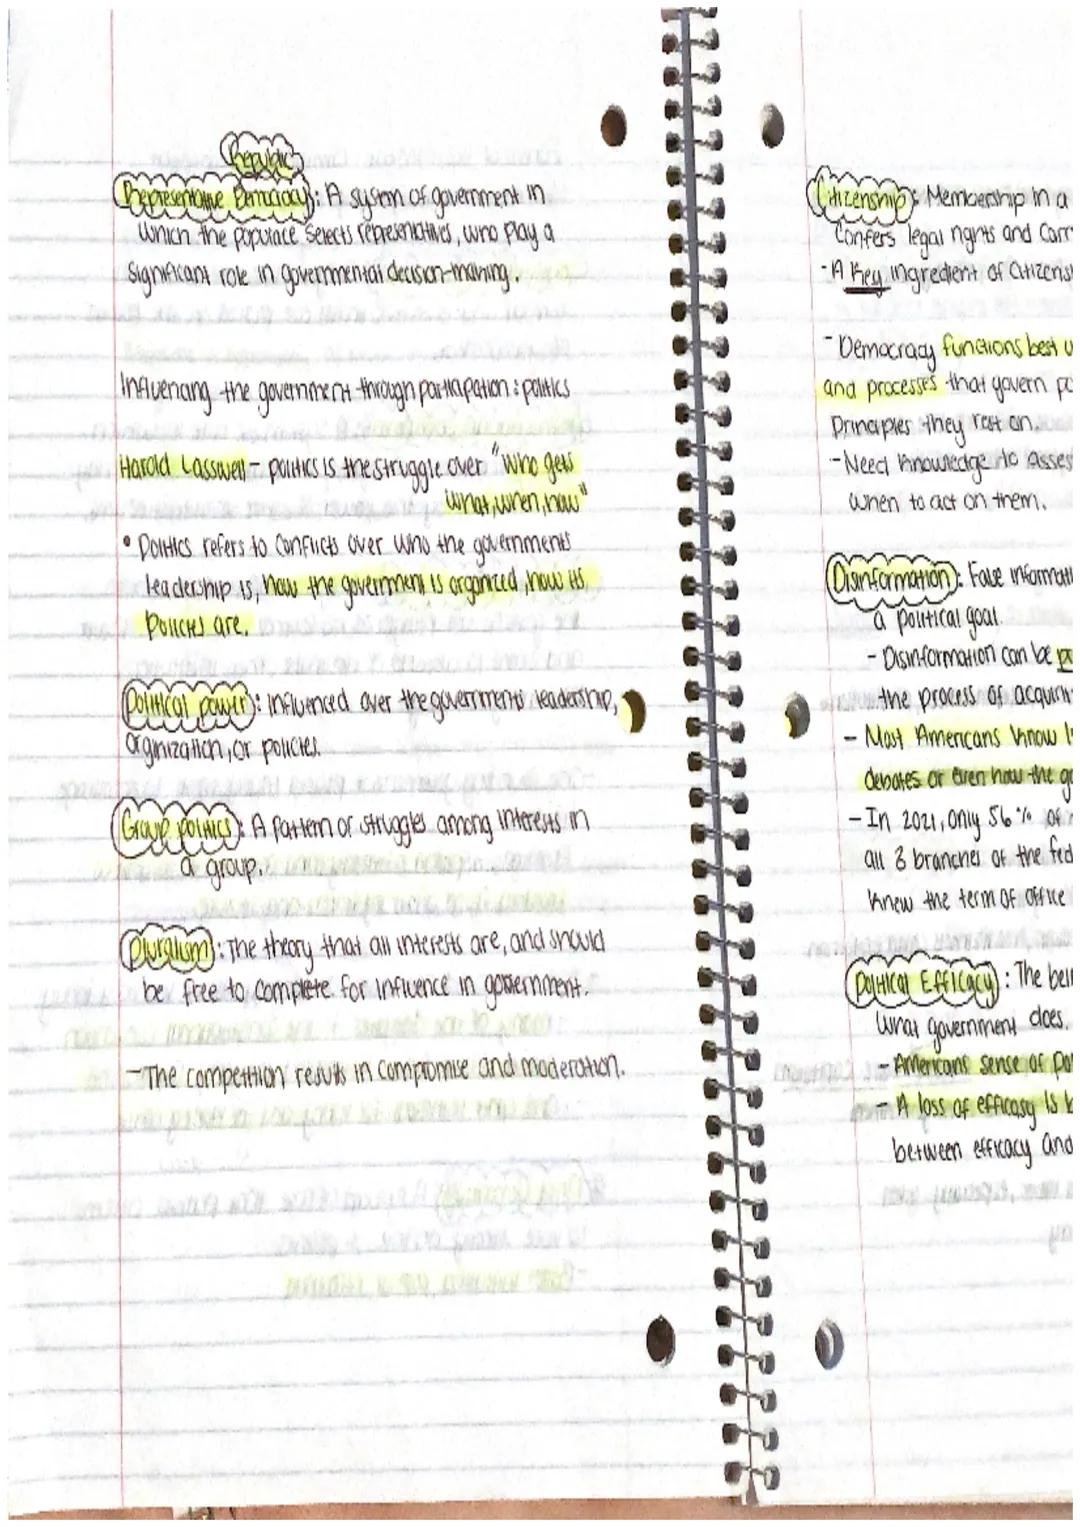 Republic
Representative Democracy: A system of government in
which the populace selects representatives, who play a
significant role in governmental decision-making.
Influencing the government through participation: politics
Harold Lasswell - politics is the struggle over "who gets
what, when, how"
• Politics refers to conflicts over who the governments
leadership is, how the government is organized, how its
policies are.
Political power: influenced over the governments leadership,
orginization, or policies.
Group politics: A pattern or struggles among interests in
a group.
Pluralism: The theory that all interests are, and should
be free to complete for influence in government.
- The competition results in compromise and moderation.
Citizenship: Membership in a
confers legal rights and carr
- A key ingredient of citizens
- Democracy functions best u
and processes that govern po
principles they rest on.
- Need knowledge to assess
when to act on them.
Disinformation: False informati
a political goal.
- Disinformation can be po
the process of acquirin
- Most Americans know l
debates or even how the go
- In 2021, only 56% of
all 3 branches of the fed
knew the term of office
Political Efficacy: The beli
what government does.
- Americans sense of po
- A loss of efficasy is b
between efficacy and